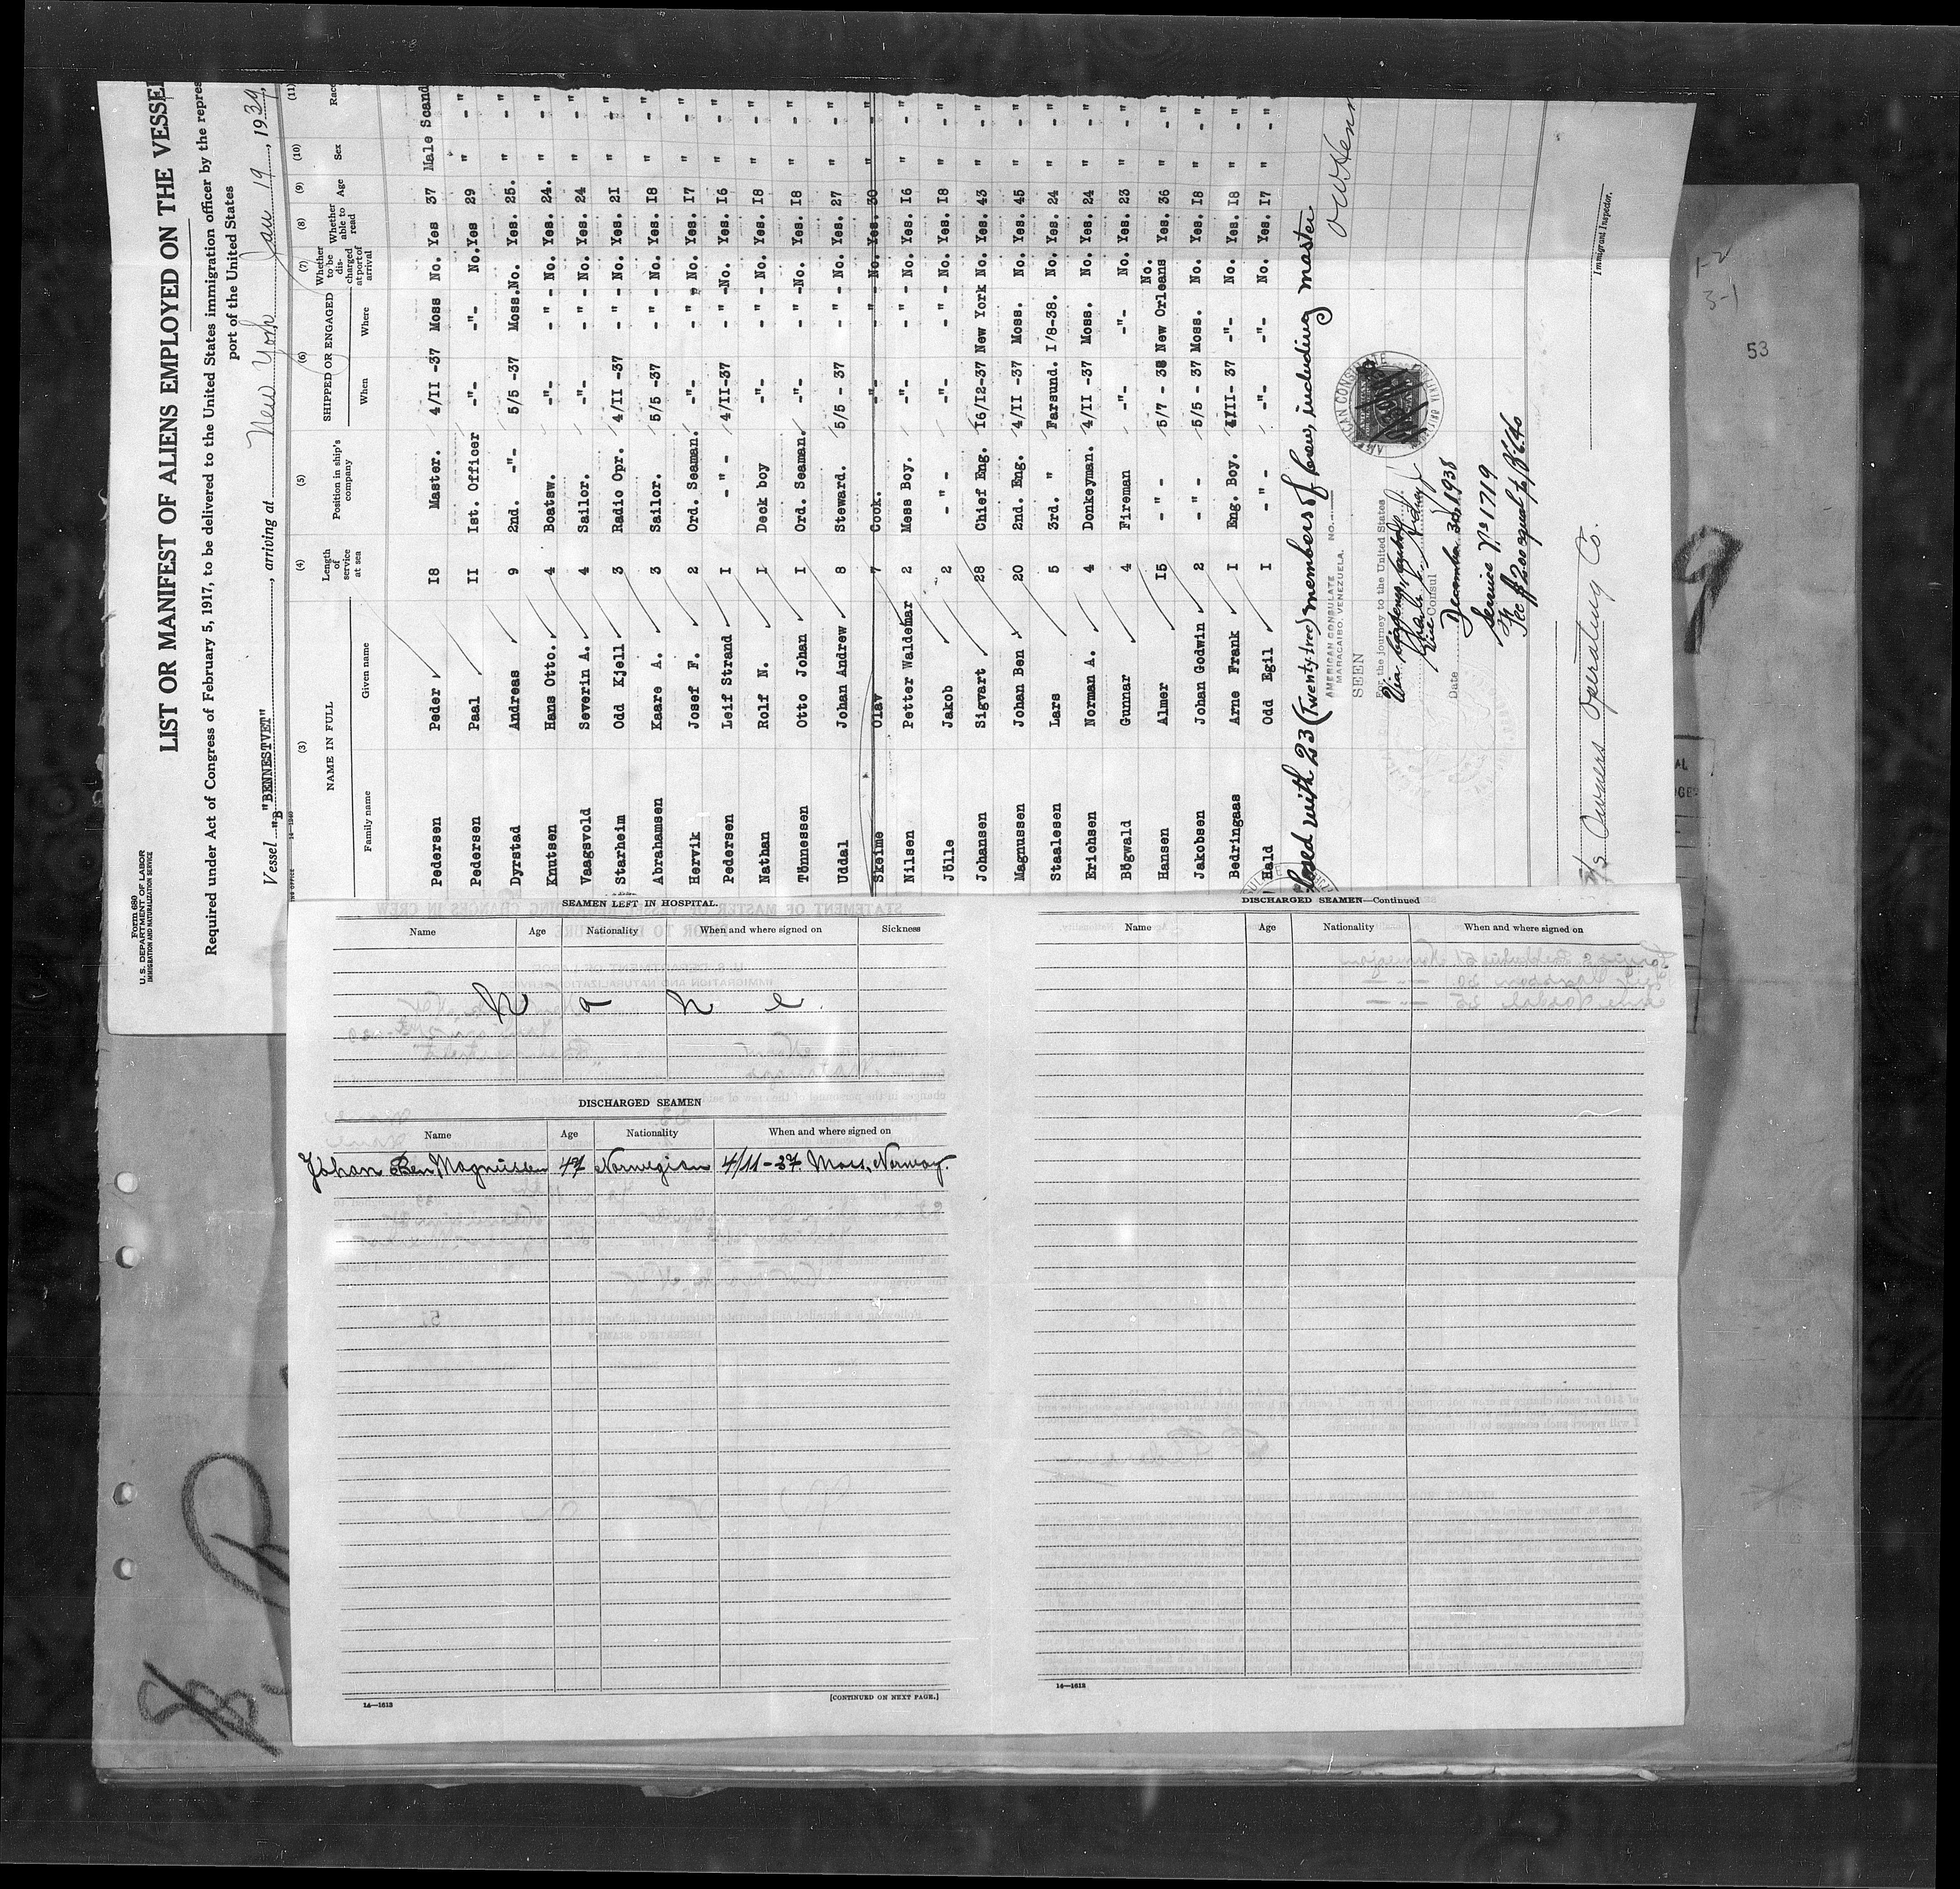 Form 680
U. S. DEPARTMENT OF LABOR
IMMIGRATION AND NATURALIZATION SERVICE
LIST OR MANIFEST OF ALIENS EMPLOYED ON THE VESSEL
Required under Act of Congress of February 5, 1917, to be delivered to the United States immigration officer by the repres
port of the United States
Vessel "BENNESTVET", arriving at New York Jan 19, 1939,
(3) (4) (5) (6) (7) (8) (9) (10) (11)
NAME IN FULL Length of service at sea Position in ship's company SHIPPED OR ENGAGED Whether to be discharged at port of arrival Whether able to read Age Sex Race
Family name Given name When Where
Pedersen Peder 18 Master. 4/II -37 Moss No. Yes 37 Male Scand
Pedersen Paal II Ist. Officer -"- -"- No. Yes 29 " - "
Dyrstad Andreas 9 2nd. -"- 5/5 -37 Moss. No. Yes. 25. " - "
Knutsen Hans Otto. 4 Boatsw. -"- - " - No. Yes. 24. " - "
Vaagsvold Severin A. 4 Sailor. -"- - " - No. Yes. 24 " - "
Starheim Odd Kjell 3 Radio Opr. 4/II -37 - " - No. Yes. 2I " - "
Abrahamsen Kaare A. 3 Sailor. 5/5 -37 - " - No. Yes. I8 " - "
Hervik Josef F. 2 Ord. Seaman. -"- - " - No. Yes. I7 " - "
Pedersen Leif Strand I - " - 4/II-37 - " - No. Yes. I6 " - "
Nathan Rolf N. I Deck boy -"- - " - No. Yes. I8 " - "
Tönnessen Otto Johan I Ord. Seaman. -"- - " - No. Yes. I8 " - "
Uddal Johan Andrew 8 Steward. 5/5 - 37 - " - No. Yes. 27 " - "
Skeime Olav 7 Cook. -"- - " - No. Yes. 30 " - "
Nilsen Petter Waldemar 2 Mess Boy. -"- - " - No. Yes. I6 " - "
Jölle Jakob 2 - " - -"- - " - No. Yes. I8 " - "
Johansen Sigvart 28 Chief Eng. I6/I2-37 New York No. Yes. 43 " - "
Magnussen Johan Ben 20 2nd. Eng. 4/II -37 Moss. No. Yes. 45 " - "
Staalesen Lars 5 3rd. " Farsund. I/8-38. No. Yes. 24 " - "
Erichsen Norman A. 4 Donkeyman. 4/II -37 Moss. No. Yes. 24 " - "
Bögwald Gunnar 4 Fireman -"- -"- No. Yes. 23 " - "
Hansen Almer I5 - " - 5/7 - 38 New Orleans No. Yes. 36 " - "
Jakobsen Johan Godwin 2 - " - 5/5 - 37 Moss. No. Yes. I8 " - "
Bedringaas Arne Frank I Eng. Boy. 4/II- 37 -"- No. Yes. I8 " - "
Hald Odd Egil I - " - -"- -"- No. Yes. I7 " - "
Closed with 23 (Twenty-tree) members of Crew, including master
AMERICAN CONSULATE NO.
MARACAIBO, VENEZUELA.
SEEN
For the journey to the United States
Vice Consul
Date December 30, 1938
Service No 1719
AMERICAN CONSULATE
Owners Operating Co.
Immigrant Inspector.
1-2
3-1
53
SEAMEN LEFT IN HOSPITAL.
Name Age Nationality When and where signed on Sickness
None
DISCHARGED SEAMEN
Name Age Nationality When and where signed on
Johan Ben Magnussen 47 Norwegian 4/11-37. Moss, Norway.
14—1613
[CONTINUED ON NEXT PAGE.]
DISCHARGED SEAMEN—Continued
Name Age Nationality When and where signed on
14—1613